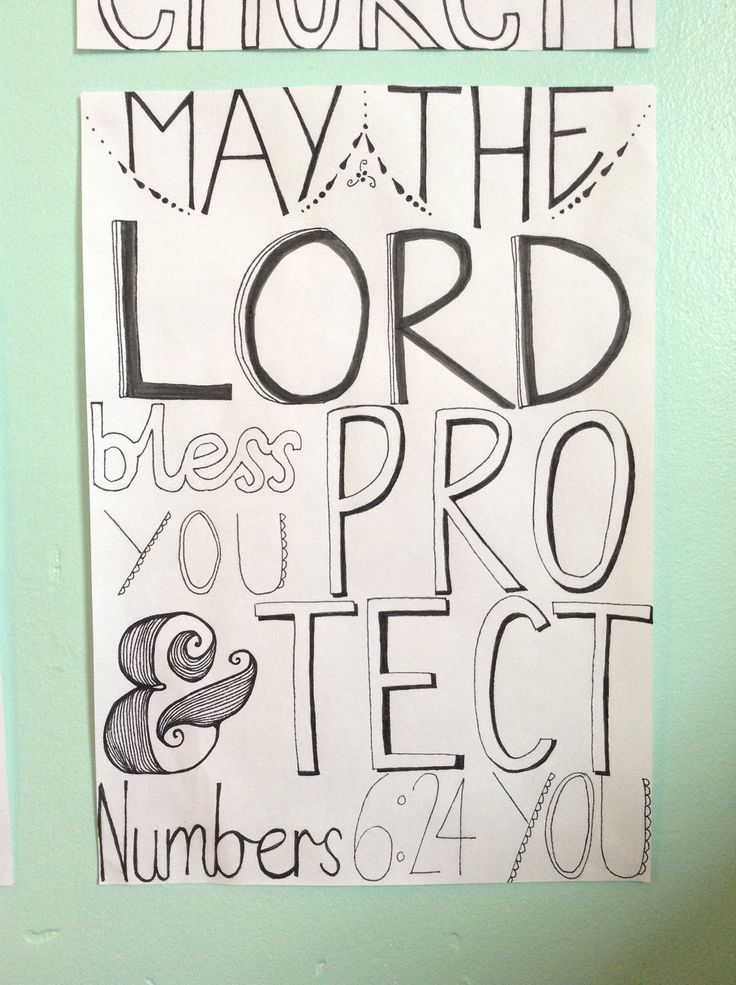 CHURCH
MAY THE
LORD
bless PRO
YOU
& TECT
Numbers 6:24 YOU